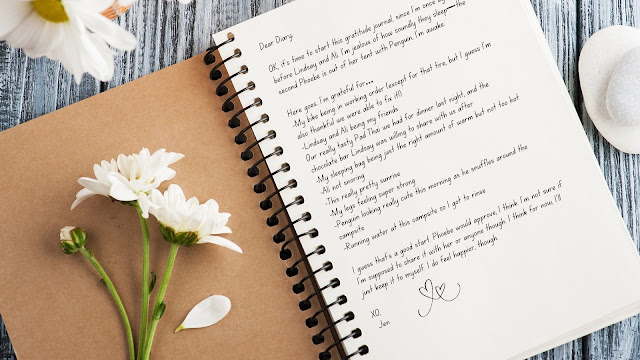 Dear Diary,
OK, it's time to start this gratitude journal, since I'm once
before Lindsay and Ali. I'm jealous of how soundly they sleep—the
second Phoebe is out of her tent with Penguin, I'm awake.
Here goes. I'm grateful for...
-My bike being in working order (except for that tire, but I guess I'm
also thankful we were able to fix it!)
-Lindsay and Ali being my friends
Our really tasty Pad Thai we had for dinner last night, and the
chocolate bar Lindsay was willing to share with us after
-My sleeping bag being just the right amount of warm but not too hot
-Ali not snoring
-This really pretty sunrise
-My legs feeling super strong
-Penguin looking really cute this morning as he snuffles around the
campsite
-Running water at this campsite so I got to rinse
I guess that's a good start. Phoebe would approve, I think. I'm not sure if
I'm supposed to share it with her or anyone though. I think for now, I'll
just keep it to myself. I do feel happier, though.
XO,
Jen